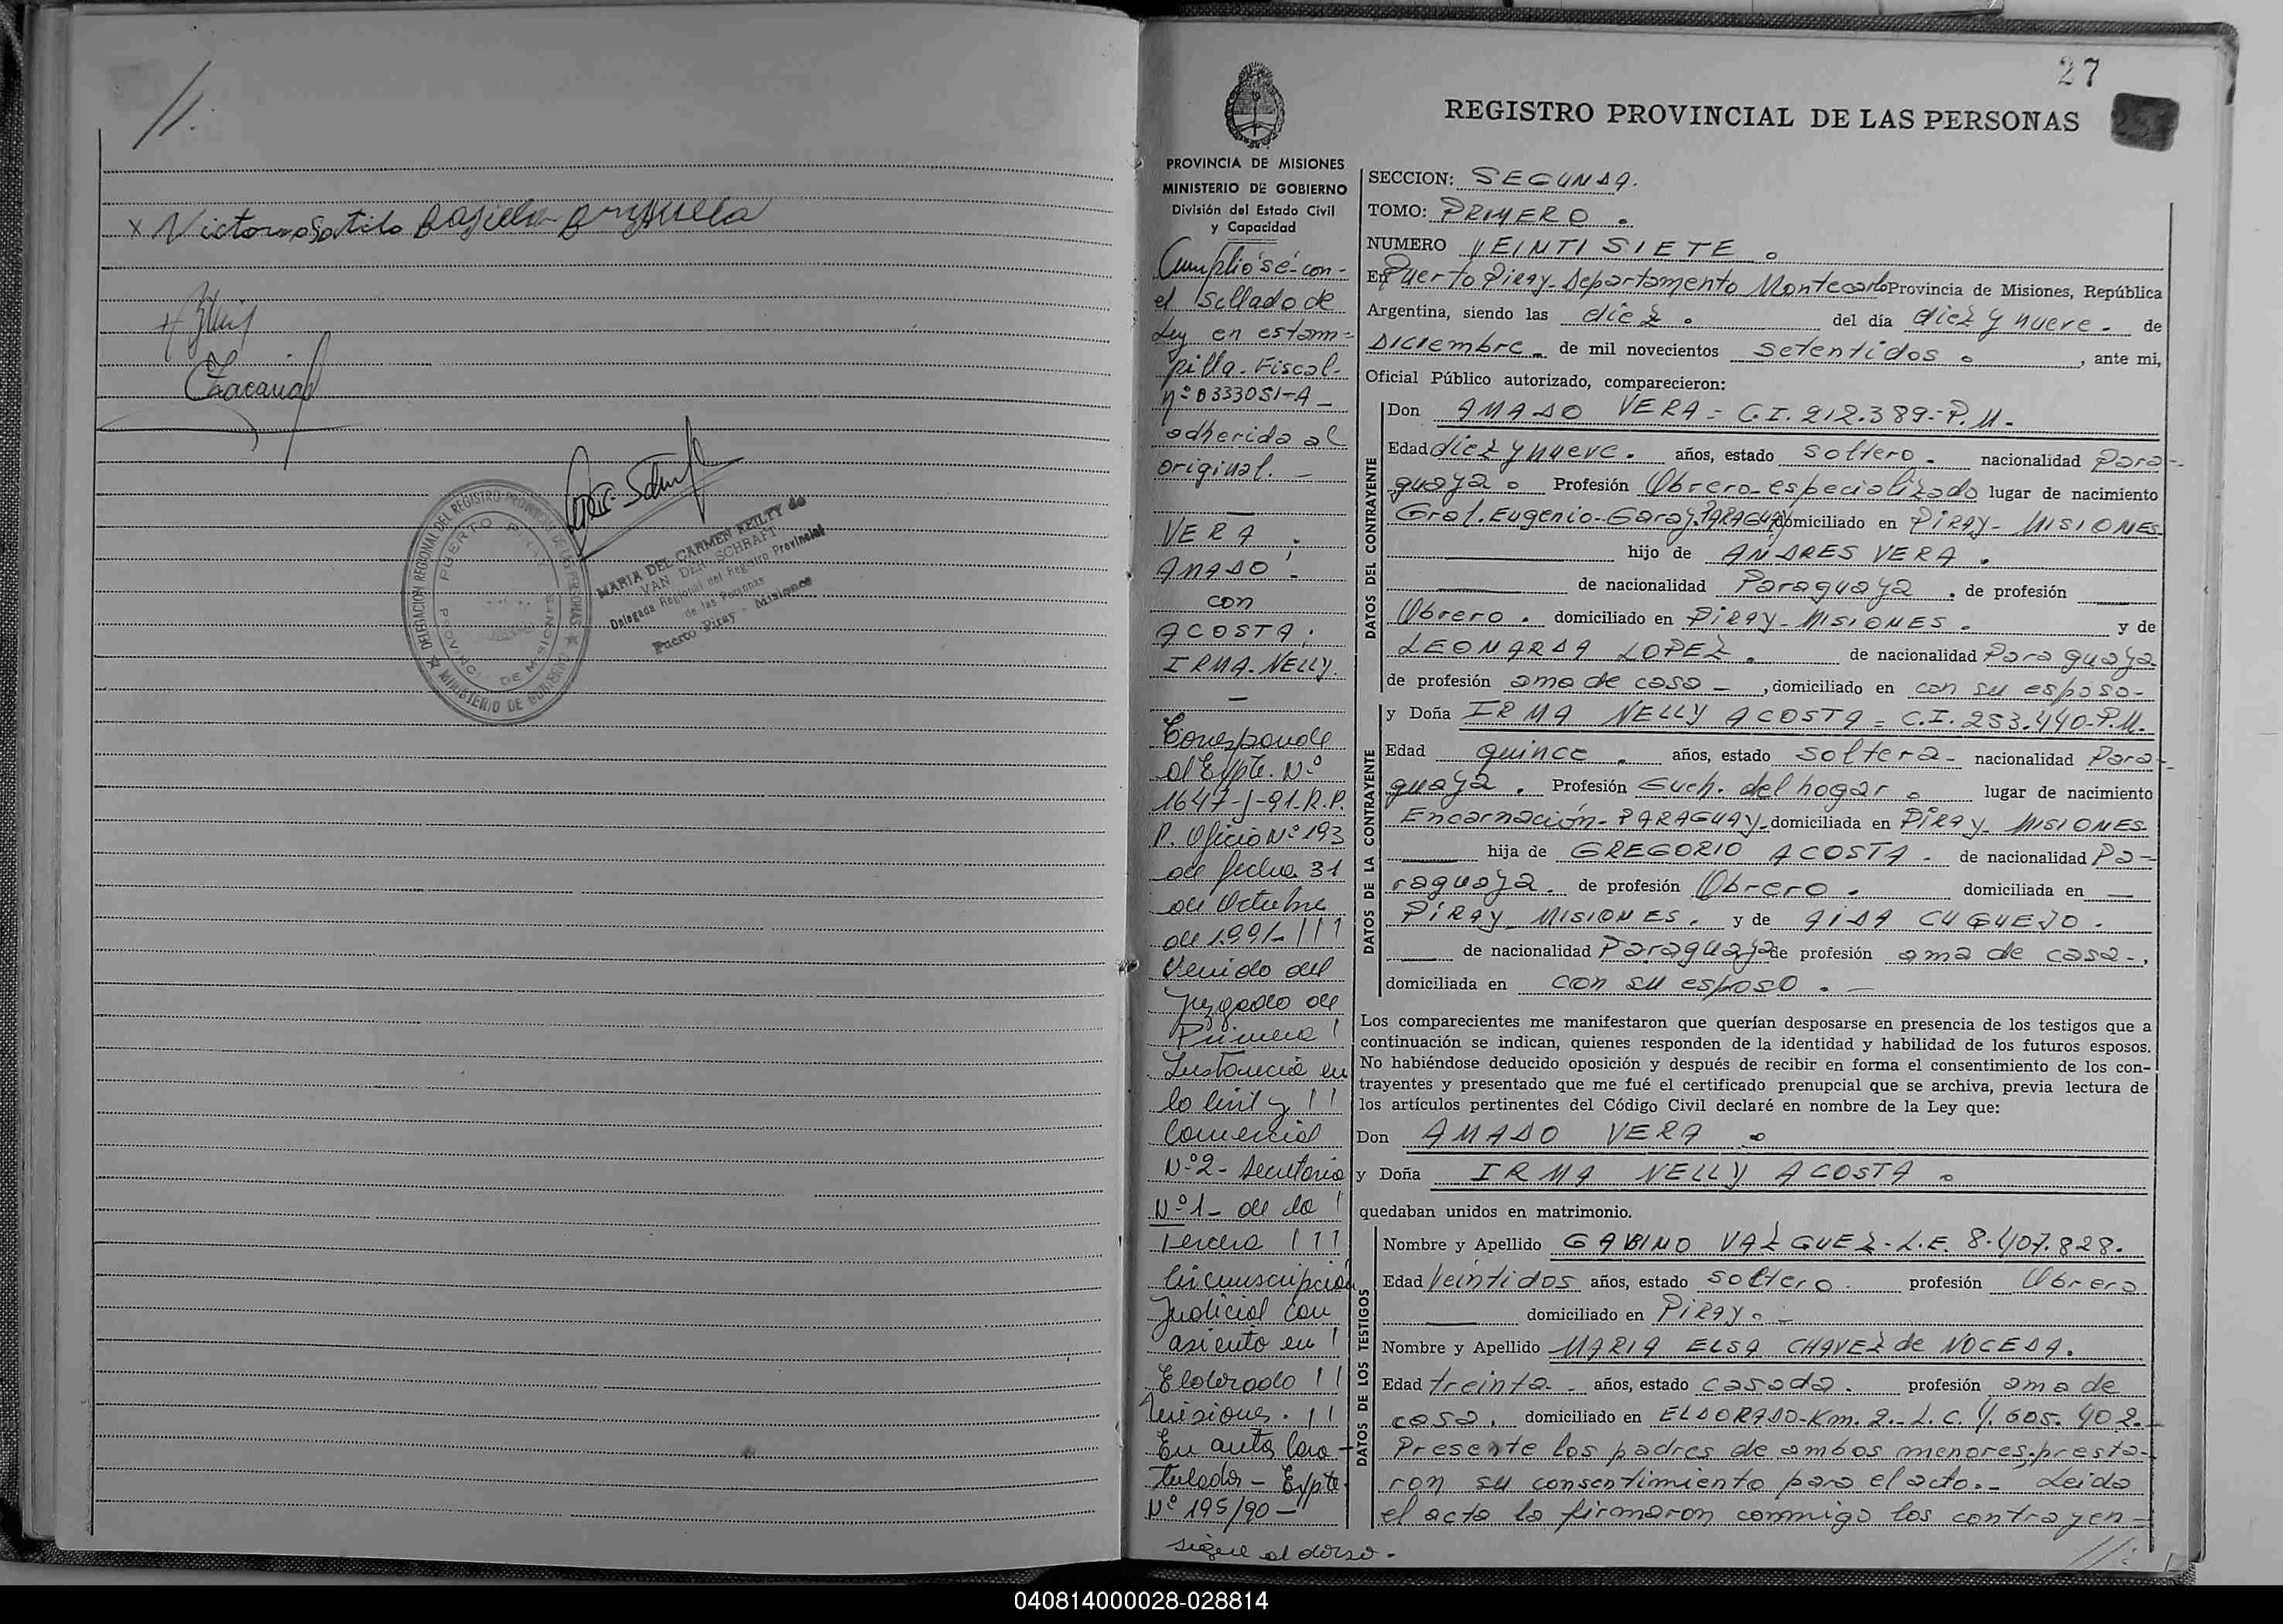 //.
x Victor
MARIA DEL CARMEN KEILTY de
VAN DER SCHRAFT
Delegada Regional del Registro Provincial
de las Personas
Puerto Piray - Misiones
DELEGACION REGIONAL DEL REGISTRO PROVINCIAL DE LAS PERSONAS
MINISTERIO DE GOBIERNO
PUERTO PIRAY
PROVINCIA DE MISIONES
27
REGISTRO PROVINCIAL DE LAS PERSONAS
PROVINCIA DE MISIONES
MINISTERIO DE GOBIERNO
División del Estado Civil
y Capacidad
Cumplióse con-
el Sellado de
Ley en estam=
pilla. Fiscal-
nº 0333051-A-
adherida al
original. -
VERA ;
AMADO -
con
ACOSTA;
IRMA. NELLY.
Corresponde
al Expte. Nº
1647-J-91-R.P.
P. Oficio Nº 193
de fecha 31
de Octubre
de 1.991- ///
Venido del
Juzgado de
Primera /
Instancia en
lo Civil y //
Comercial
Nº 2 - Secretaria
Nº 1 - de la /
Tercera ///
Circunscripción
Judicial con
asiento en /
Eldorado //
Misiones. //
En autos Cara-
tulados - Expte.
Nº 195/90 -
sigue al dorso -
SECCION: SEGUNDA.
TOMO: PRIMERO.
NUMERO VEINTISIETE.
En Puerto Piray-Departamento Montecarlo Provincia de Misiones, República
Argentina, siendo las diez. del día diez y nueve. de
Diciembre. de mil novecientos setentidos., ante mi,
Oficial Público autorizado, comparecieron:
DATOS DEL CONTRAYENTE
Don AMADO VERA = C.I. 212.389.-P.M.-
Edad diez y nueve. años, estado soltero. nacionalidad Para-
guaya. Profesión Obrero-especializado lugar de nacimiento
Gral. Eugenio-Garay.PARAGUAY domiciliado en PIRAY- MISIONES.
hijo de ANDRES VERA.
de nacionalidad Paraguaya. de profesión
Obrero. domiciliado en PIRAY-MISIONES. y de
LEONARDA LOPEZ. de nacionalidad Paraguaya.
de profesión ama de casa -, domiciliado en con su esposo-
DATOS DE LA CONTRAYENTE
y Doña IRMA NELLY ACOSTA = C.I. 253.440-P.M.-
Edad quince. años, estado soltera- nacionalidad Para-
guaya. Profesión Gueh. del hogar. lugar de nacimiento
Encarnación-PARAGUAY-domiciliada en PIRAY- MISIONES
hija de GREGORIO ACOSTA. de nacionalidad Pa-
raguaya. de profesión Obrero. domiciliada en
PIRAY MISIONES. y de AIDA CUGUEJO.
de nacionalidad Paraguaya de profesión ama de casa-,
domiciliada en con su esposo.-
Los comparecientes me manifestaron que querían desposarse en presencia de los testigos que a
continuación se indican, quienes responden de la identidad y habilidad de los futuros esposos.
No habiéndose deducido oposición y después de recibir en forma el consentimiento de los con-
trayentes y presentado que me fué el certificado prenupcial que se archiva, previa lectura de
los artículos pertinentes del Código Civil declaré en nombre de la Ley que:
Don AMADO VERA.
y Doña IRMA NELLY ACOSTA.
quedaban unidos en matrimonio.
DATOS DE LOS TESTIGOS
Nombre y Apellido GABINO VAZQUEZ-L.E. 8.407.828.
Edad Veintidos años, estado soltero. profesión Obrero
domiciliado en PIRAY.-
Nombre y Apellido MARIA ELSA CHAVEZ de NOCEDA.
Edad treinta. años, estado casada. profesión ama de
casa. domiciliado en ELDORADO-Km. 2.-L.C. 4.605.402.-
Presente los padres de ambos menores.presta-
ron su consentimiento para el acto.- Leida
el acta la firmaron conmigo los contrayen-
//:
040814000028-028814